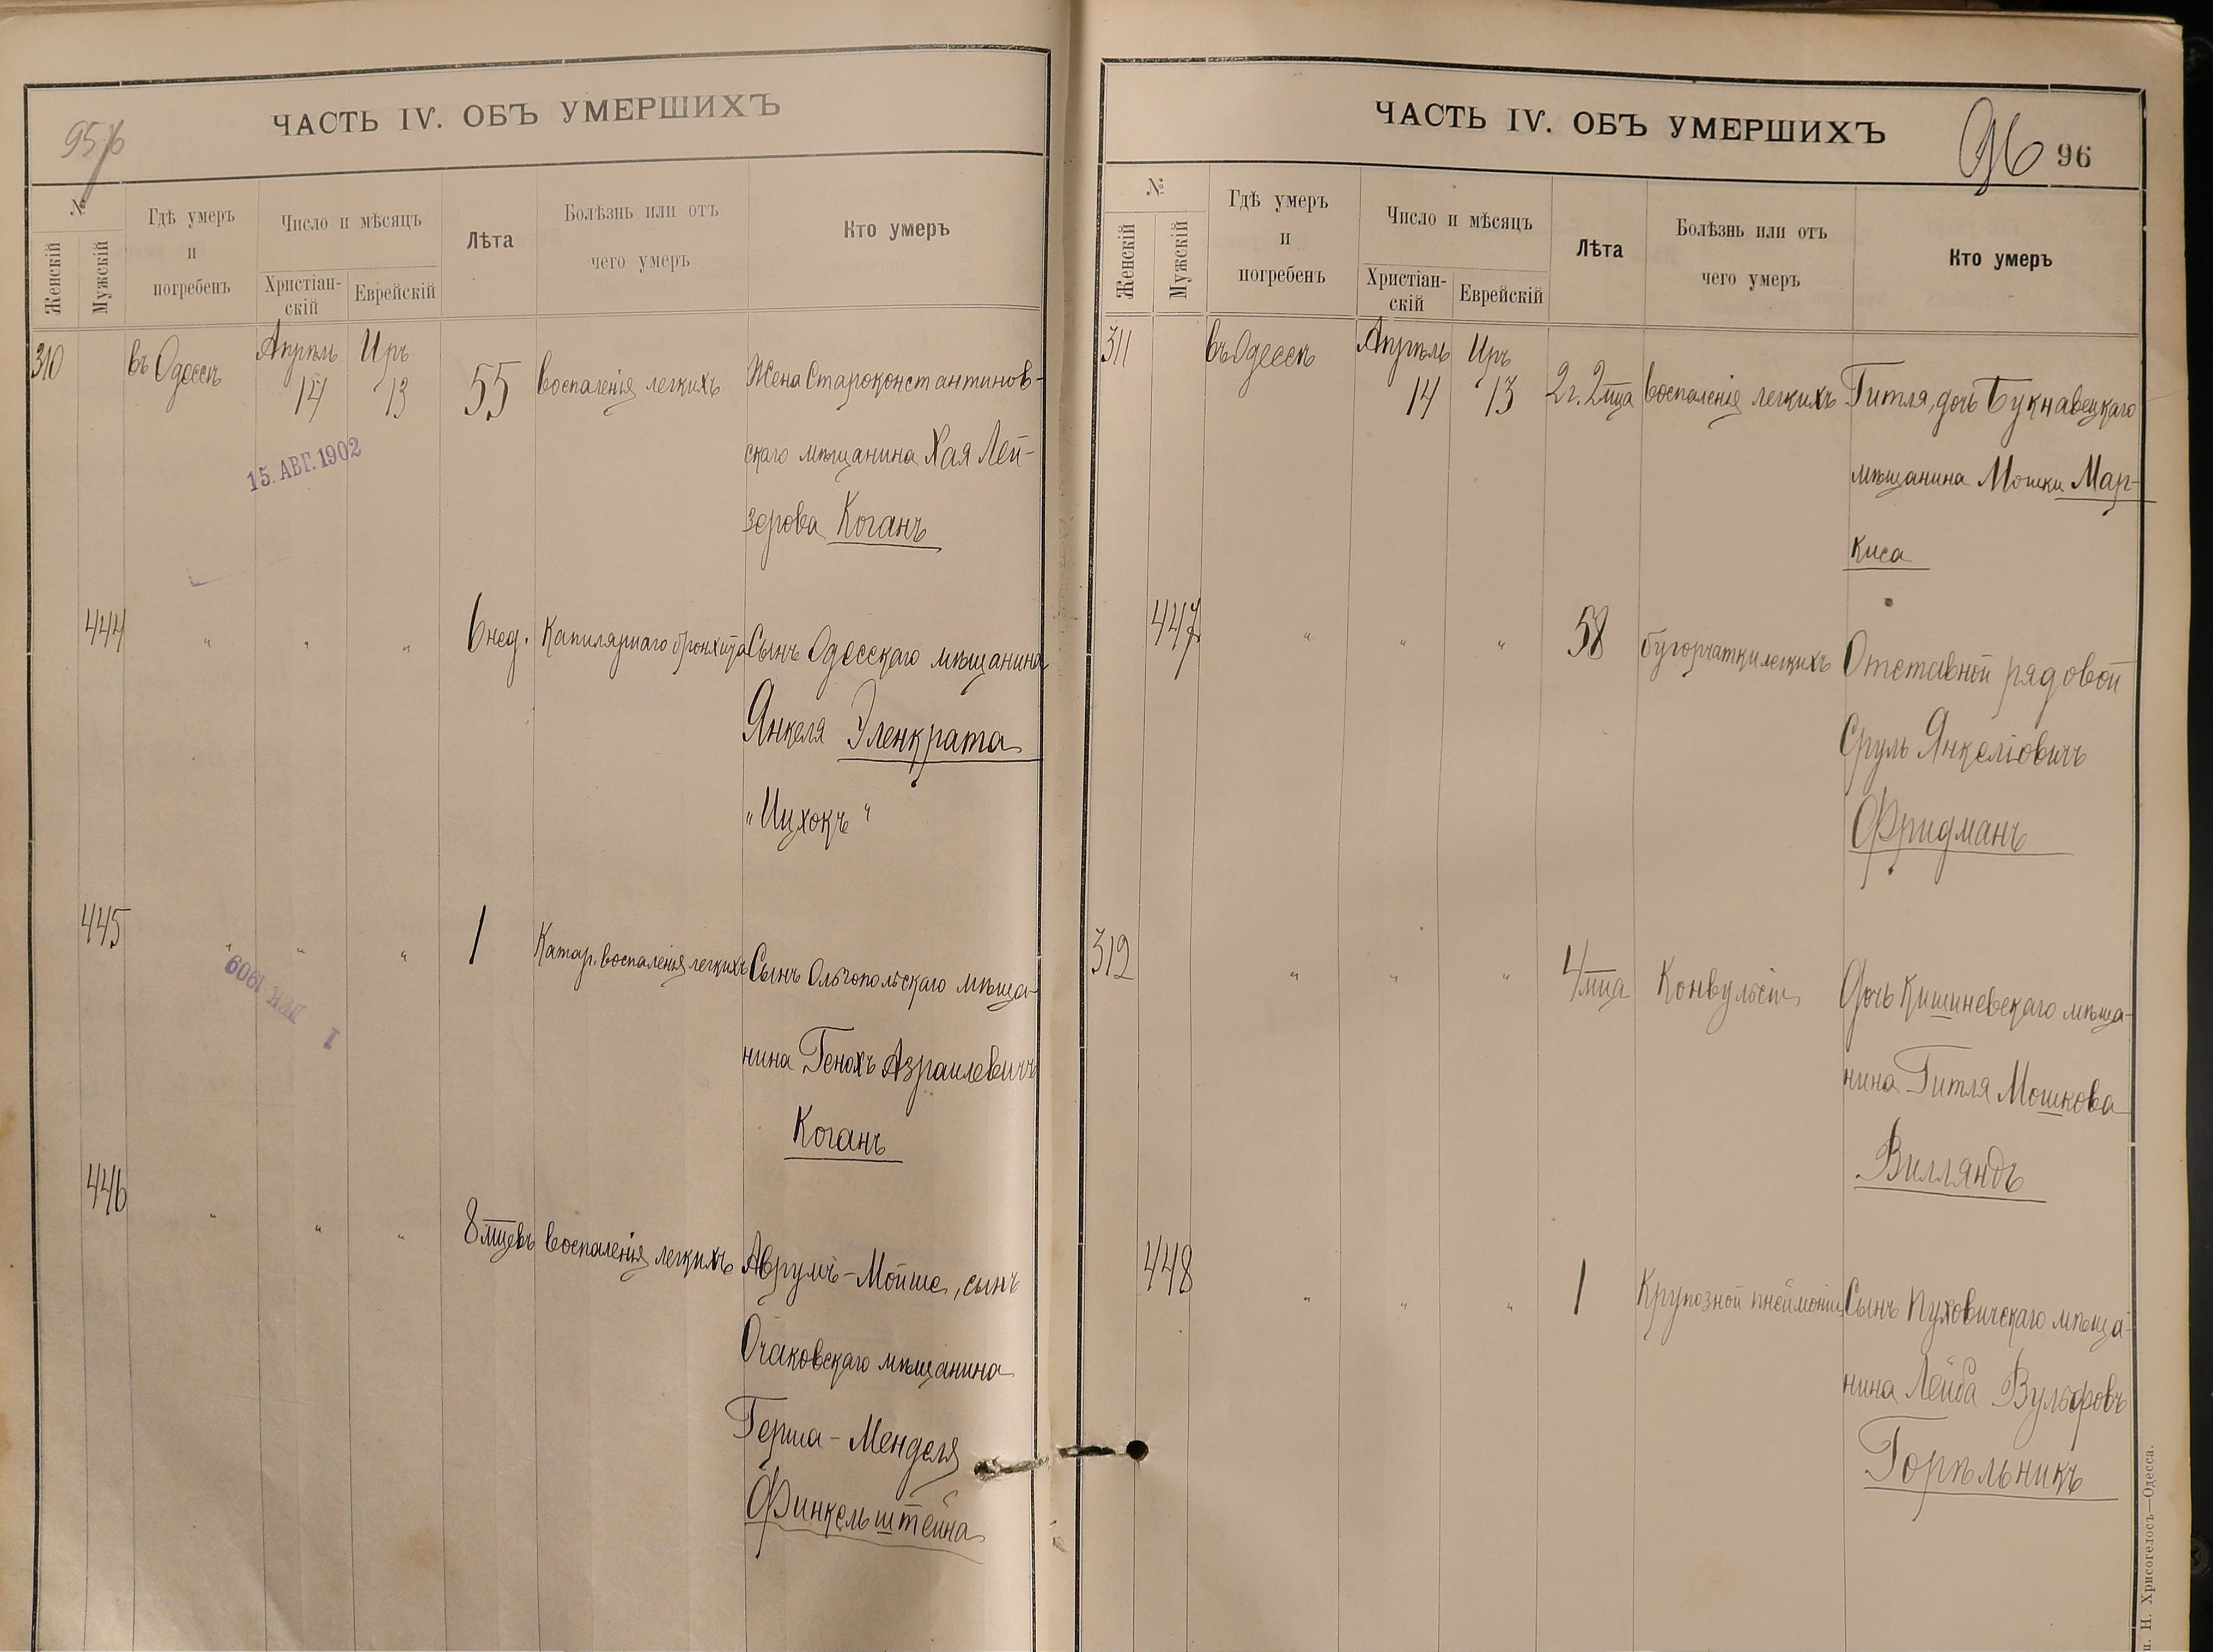 ЧАСТЬ IV. ОБЪ УМЕРШИХЪ
№
Женскій
Мужскій
Гдѣ умеръ
и
погребенъ
Число и мѣсяцъ
Христіан-
скій
Еврейскій
Лѣта
Болѣзнь или отъ
чего умеръ
Кто умеръ
310 въ Одессѣ Апрѣль 14 Иръ 13 55 воспаленія легкихъ Жена Староконстантинов-
скаго мѣщанина Хая Лей-
зерова Коганъ
15. АВГ. 1902
444 " " " 6 нед. Капилярнаго бронхита Сынъ Одесскаго мѣщанина
Янкеля Эленкрата
"Ицхокъ"
445 " " " 1 Катар. воспаленія легкихъ Сынъ Ольгопольскаго мѣща-
нина Генохъ Азраилевичъ
Коганъ
1 ДЕК 1909
446 " " " 8 мцевъ воспаленія легкихъ Аврумъ-Мойше, сынъ
Очаковскаго мѣщанина
Герша-Менделя
Финкельштейна
ЧАСТЬ IV. ОБЪ УМЕРШИХЪ
96 96
№
Женскій
Мужскій
Гдѣ умеръ
и
погребенъ
Число и мѣсяцъ
Христіан-
скій
Еврейскій
Лѣта
Болѣзнь или отъ
чего умеръ
Кто умеръ
311 въ Одессѣ Апрѣль 14 Иръ 13 2 г. 2 мца воспаленія легкихъ Гитля, дочь
мѣщанина Мошки Мар-
киса
447 " " " 58 бугорчатки легкихъ Отставной рядовой
Сруль Янкеліовичъ
Фридманъ
312 " " " 4 мца Конвульсіи Дочь Кишиневскаго мѣща-
нина Гитля Мошкова
Вилляндъ
448 " " " 1 Крупозной пнеймоніи Сынъ Пуховичскаго мѣща-
нина Лейба Вульфовъ
Горѣльникъ
Н. Хрисогелосъ—Одесса.